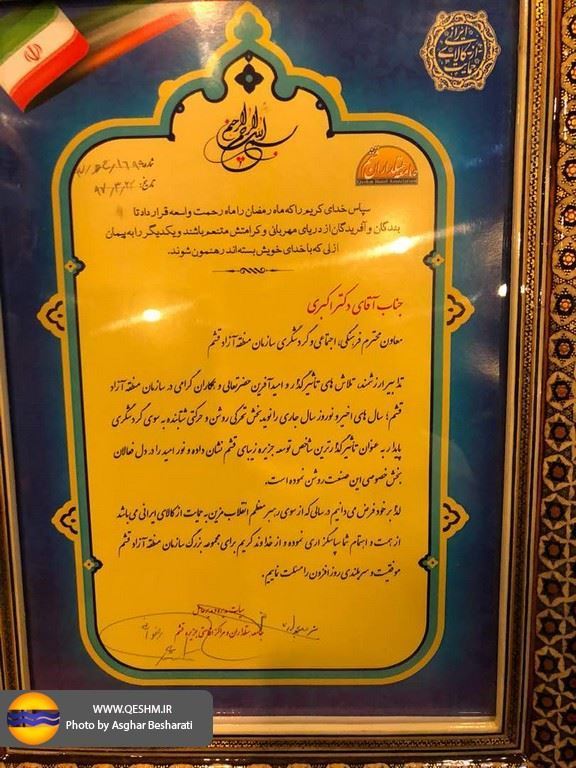 حمایت از کالای ایرانی
بسم الله الرحمن الرحیم
جامعه هتلداران
Qeshm Hotel Association
تاریخ: ۹۷/۳/۲۲
سپاس خدای کریم را که ماه رمضان را ماه رحمت واسعه قرار داد تا
بندگان و آفریدگان از دریای مهربانی و کرامتش متنعم باشند و یکدیگر را به پیمان
ازلی که با خدای خویش بسته اند رهنمون شوند.
جناب آقای دکتر اکبری
معاون محترم فرهنگی، اجتماعی و گردشگری سازمان منطقه آزاد قشم
تدابیر ارزشمند، تلاش های تأثیرگذار و امیدآفرین حضرتعالی و همکاران گرامی در سازمان منطقه آزاد
قشم؛ سال های اخیر و نوروز سال جاری را نویدبخش تحرکی روشن و حرکتی شتابنده به سوی گردشگری
پایدار به عنوان تأثیرگذارترین شاخص توسعه جزیره زیبای قشم نشان داده و نور امید را در دل فعالان
بخش خصوصی این صنعت روشن نموده است.
لذا بر خود فرض می دانیم در سالی که از سوی رهبر معظم انقلاب مزین به حمایت از کالای ایرانی می باشد
از همت و اهتمام شما سپاسگزاری نموده و از خداوند کریم برای مجموعه بزرگ سازمان منطقه آزاد قشم
موفقیت و سربلندی روز افزون را مسئلت نماییم.
جامعه هتلداران و مراکز اقامتی جزیره قشم
WWW.QESHM.IR
Photo by Asghar Besharati